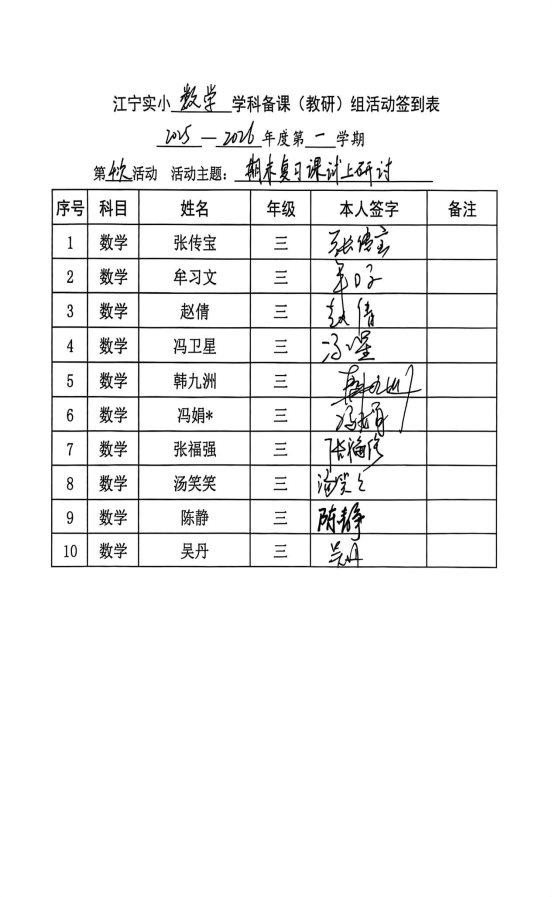 江宁实小 数学 学科备课（教研）组活动签到表
2025—2026年度第一学期
第 次活动 活动主题：期末复习课 研讨
序号 科目 姓名 年级 本人签字 备注
1 数学 张传宝 三 张传宝
2 数学 牟习文 三
3 数学 赵倩 三 赵倩
4 数学 冯卫星 三 冯卫星
5 数学 韩九洲 三 韩九洲
6 数学 冯娟* 三 冯娟
7 数学 张福强 三 张福强
8 数学 汤笑笑 三 汤笑笑
9 数学 陈静 三 陈静
10 数学 吴丹 三 吴丹